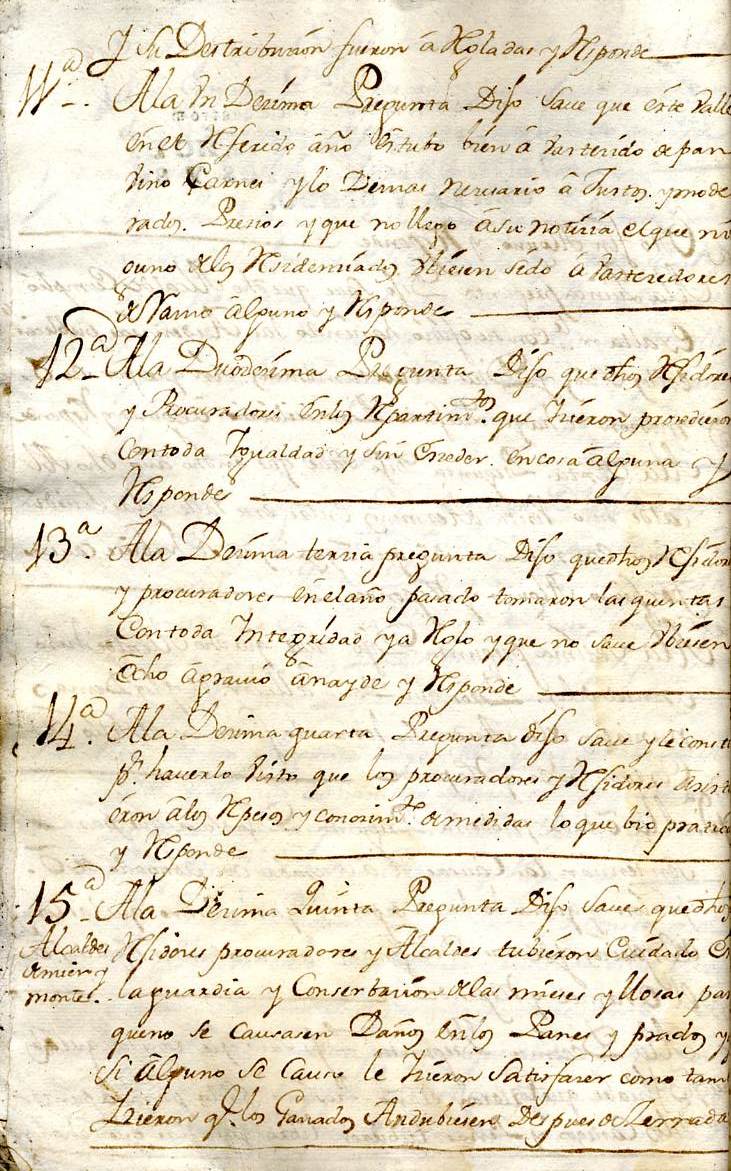 Y Su Destribución fueron á Rgladas y Rsponde
11ª. Ala Un Dezima Pregunta Dijo save que este Valle
en el Rferido año estubo bien á Vastezido de pan
Vino Carnes y lo Demas nezesario á Justos. y mode
rados. Prezios y que no llego á su notizia el que nin
guno de los Rsidenziados Vbiesen sido á Vastezedores
de Ramo alguno y Rsponde
12ª Ala Duodezima Pregunta Dijo que dhos Rjidores
y Procuradores en los Rpartimtos. que hizieron prozedieron
Con toda Igualdad y sin Exzeder en cosa alguna Y
Rsponde
13ª. Ala Dezima terzia pregunta Dijo que dhos Rjidores
y procuradores en el año pasado tomaron las quentas
Con toda Integridad y a Rglo y que no save Vbiesen
echo agravio anayde y Rsponde
14ª. Ala Dezima quarta Pregunta dijo save y le consta
pr. haverlo Visto que los procuradores y Rjidores asisti
eron álos Rpesos y conozimto. de medidas lo que bio practicar
y Rsponde
15ª Ala Dezima Quinta Pregunta Dijo Save que dhos
Alcaldes
de mies y
montes.
Rjidores procuradores y Alcaldes tubieron Cuidado En
la guardia y Conserbazion de las mieses y llosas para
que no se causasen Daños en los Panes y prados y
Si alguno se Causo le hizieron Satisfazer como tam
hizieron qe. los Ganados Andubiesen Despues de Zerrada